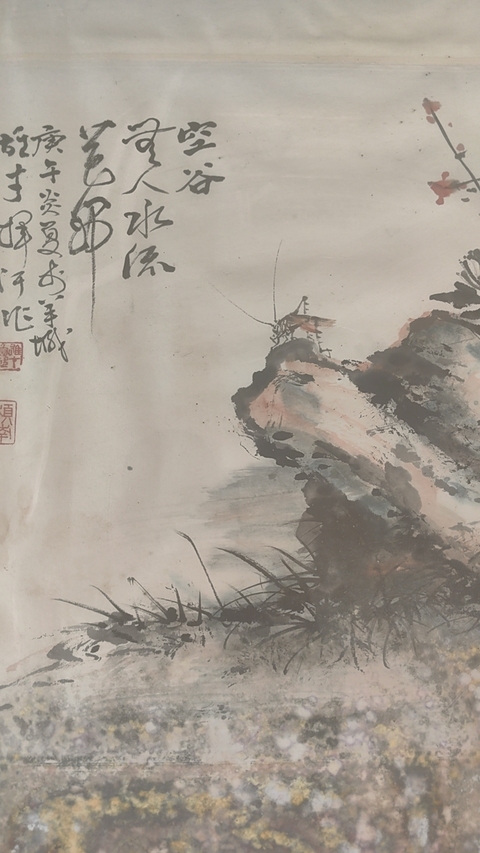 空谷
無人水流
花開
庚午炎夏於羊城
揮汗作